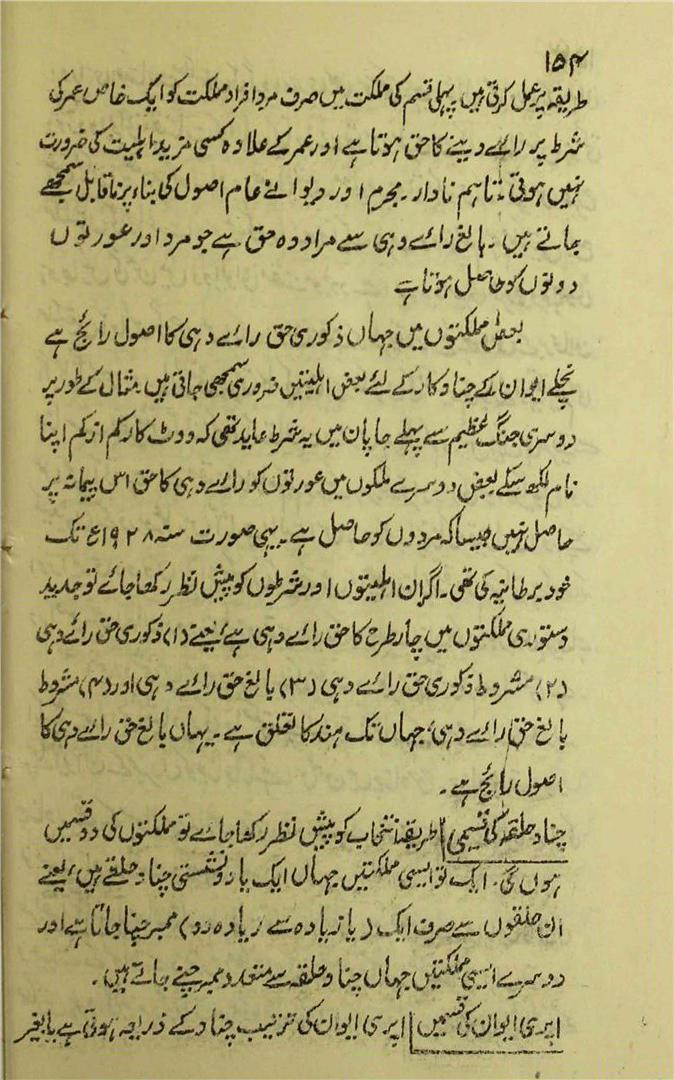 ۱۵۴
طریقہ پر عمل کرتی ہیں پہلی قسم کی مملکت میں صرف مرد افراد مملکت کو ایک خاص عمر کی
شرط پر رائے دینے کا حق ہوتا ہے اور عمر کے علاوہ کسی مزید اہلیت کی ضرورت
نہیں ہوتی۔ تاہم نادار۔ مجرم اور دیوانے عام اصول کی بناء پر ناقابل سمجھے
جاتے ہیں۔ بالغ رائے دہی سے مراد وہ حق ہے جو مرد اور عورتوں
دونوں کو حاصل ہوتا ہے
بعض مملکتوں میں جہاں ذکوری حق رائے دہی کا اصول رائج ہے
نچلے ایوان کے چناوکار کے لئے بعض اہلیتیں ضروری سمجھی جاتی ہیں۔ مثال کے طور پر
دوسری جنگ عظیم سے پہلے جاپان میں یہ شرط عاید تھی کہ ووٹ کار کم از کم اپنا
نام لکھ سکے بعض دوسرے ملکوں میں عورتوں کو رائے دہی کا حق اس پیمانہ پر
حاصل نہیں جیسا کہ مردوں کو حاصل ہے۔ یہی صورت سنہ ۱۹۲۸ع تک
خود برطانیہ کی تھی۔ اگر ان اہلیتوں اور شرطوں کو پیش نظر رکھا جائے تو جدید
دستوری مملکتوں میں چار طرح کا حق رائے دہی ہے، یعنے (۱) ذکوری حق رائے دہی
(۲) مشروط ذکوری حق رائے دہی (۳) بالغ حق رائے دہی اور (۴) مشروط
بالغ حق رائے دہی، جہاں تک ہند کا تعلق ہے۔ یہاں بالغ حق رائے دہی کا
اصول رائج ہے۔
چناو حلقہ کی تقسیم طریقہ انتخاب کو پیش نظر رکھا جائے تو مملکتوں کی دو قسمیں
ہوں گی۔ ایک تو ایسی مملکتیں جہاں ایک یا دو نشستی چناو حلقے ہیں، یعنے
ان حلقوں سے صرف ایک (یا زیادہ سے زیادہ دو) ممبر چنا جاتا ہے اور
دوسرے ایسی مملکتیں جہاں چناو حلقہ سے متعدد ممبر چنے جاتے ہیں۔
اپری ایوان کی قسمیں اپری ایوان کی ترتیب چناو کے ذریعہ ہوتی ہے یا بغیر